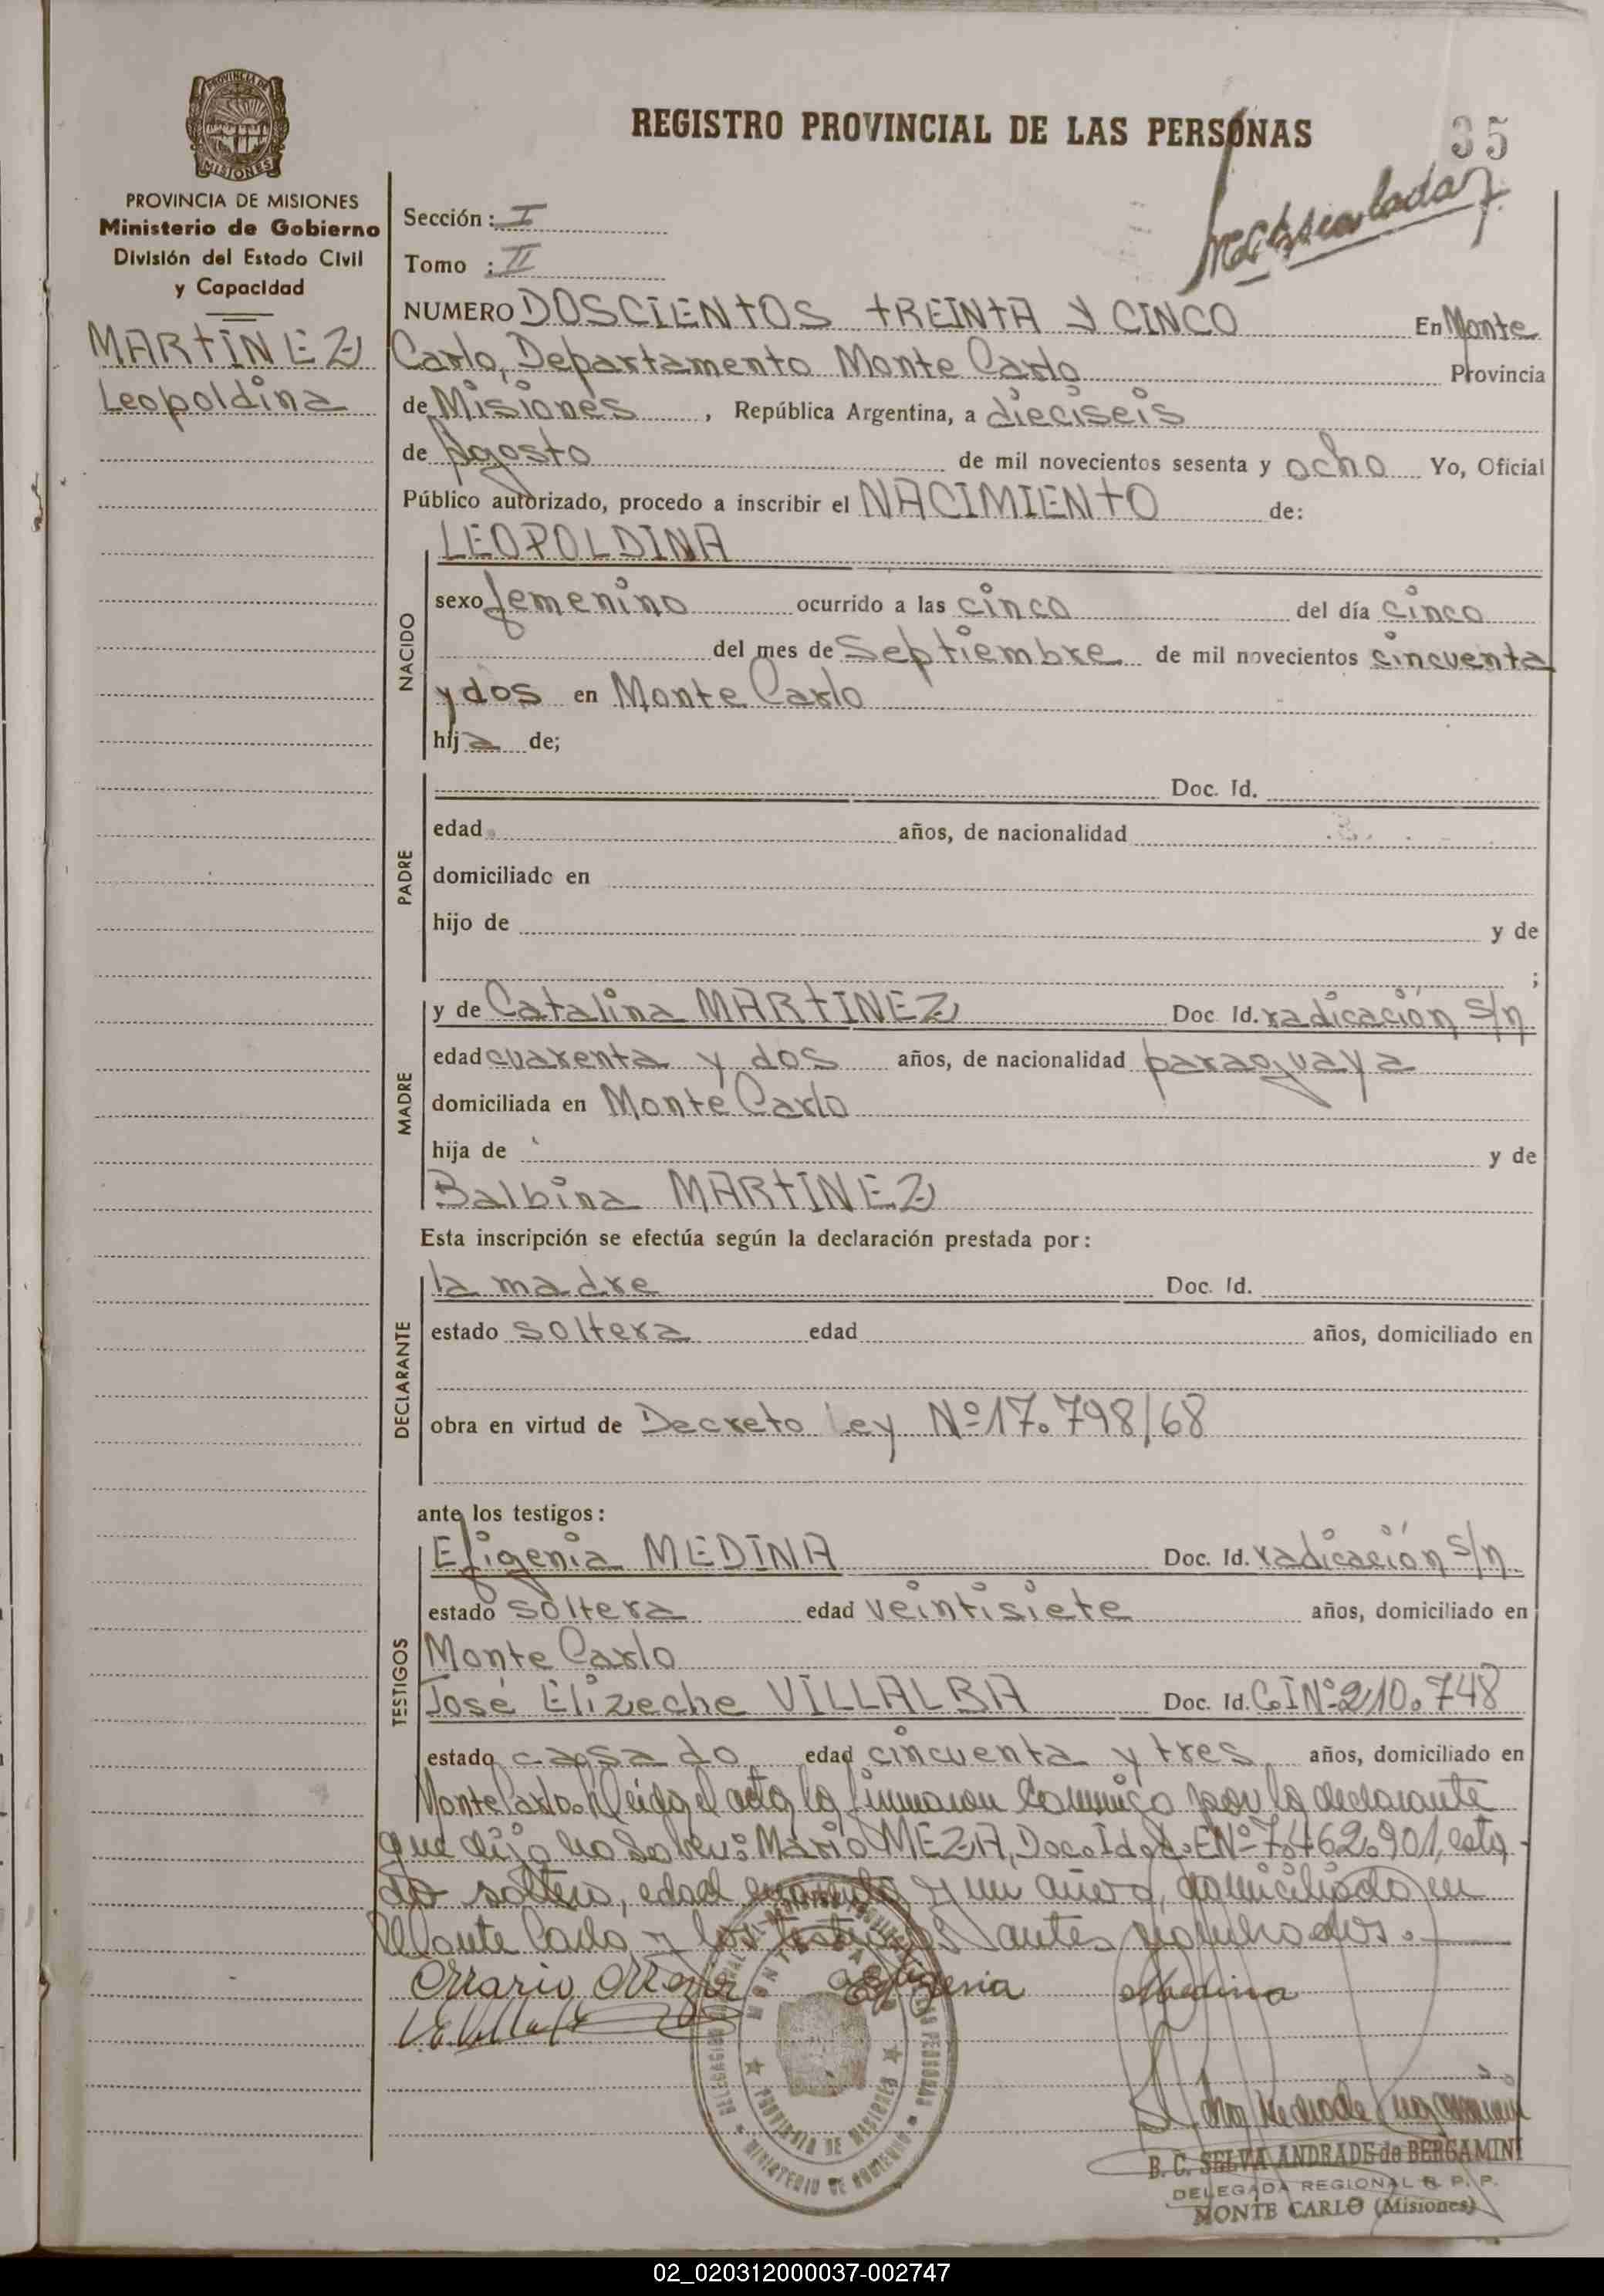 REGISTRO PROVINCIAL DE LAS PERSONAS
35
Matriculada
PROVINCIA DE MISIONES
PROVINCIA DE MISIONES
Ministerio de Gobierno
División del Estado Civil
y Capacidad
MARTINEZ
Leopoldina
Sección: I
Tomo : II
NUMERO DOSCIENTOS TREINTA Y CINCO En Monte
Carlo, Departamento Monte Carlo Provincia
de Misiones, República Argentina, a dieciseis
de Agosto de mil novecientos sesenta y ocho Yo, Oficial
Público autorizado, procedo a inscribir el NACIMIENTO de:
NACIDO
LEOPOLDINA
sexo femenino ocurrido a las cinco del día cinco
del mes de Septiembre de mil novecientos cincuenta
y dos en Monte Carlo
hija de;
PADRE
Doc. Id.
edad años, de nacionalidad
domiciliado en
hijo de y de
;
MADRE
y de Catalina MARTINEZ Doc Id. radicación s/n
edad cuarenta y dos años, de nacionalidad paraguaya
domiciliada en Monte Carlo
hija de y de
Balbina MARTINEZ
Esta inscripción se efectúa según la declaración prestada por:
DECLARANTE
la madre Doc. Id.
estado soltera edad años, domiciliado en
obra en virtud de Decreto Ley Nº 17.798/68
ante los testigos:
TESTIGOS
Efigenia MEDINA Doc. Id. radicación s/n
estado soltera edad veintisiete años, domiciliado en
Monte Carlo
José Elizeche VILLALBA Doc. Id. C.I Nº 210.748
estado casado edad cincuenta y tres años, domiciliado en
Monte Carlo. Leida el acta la firmaron conmigo por la declarante
que dijo no saber: Mario MEZA, Doc. Id. L.E Nº 7.462.901, esta
do soltero, edad cuarenta y un años, domiciliado en
Monte Carlo y los testigos antes nombrados.
Mario Meza Efigenia Medina
B. C. SELVA ANDRADE de BERGAMINI
DELEGADA REGIONAL R. P. P.
MONTE CARLO (Misiones)
PROVINCIA DE MISIONES
MINISTERIO DE GOBIERNO
02_020312000037-002747